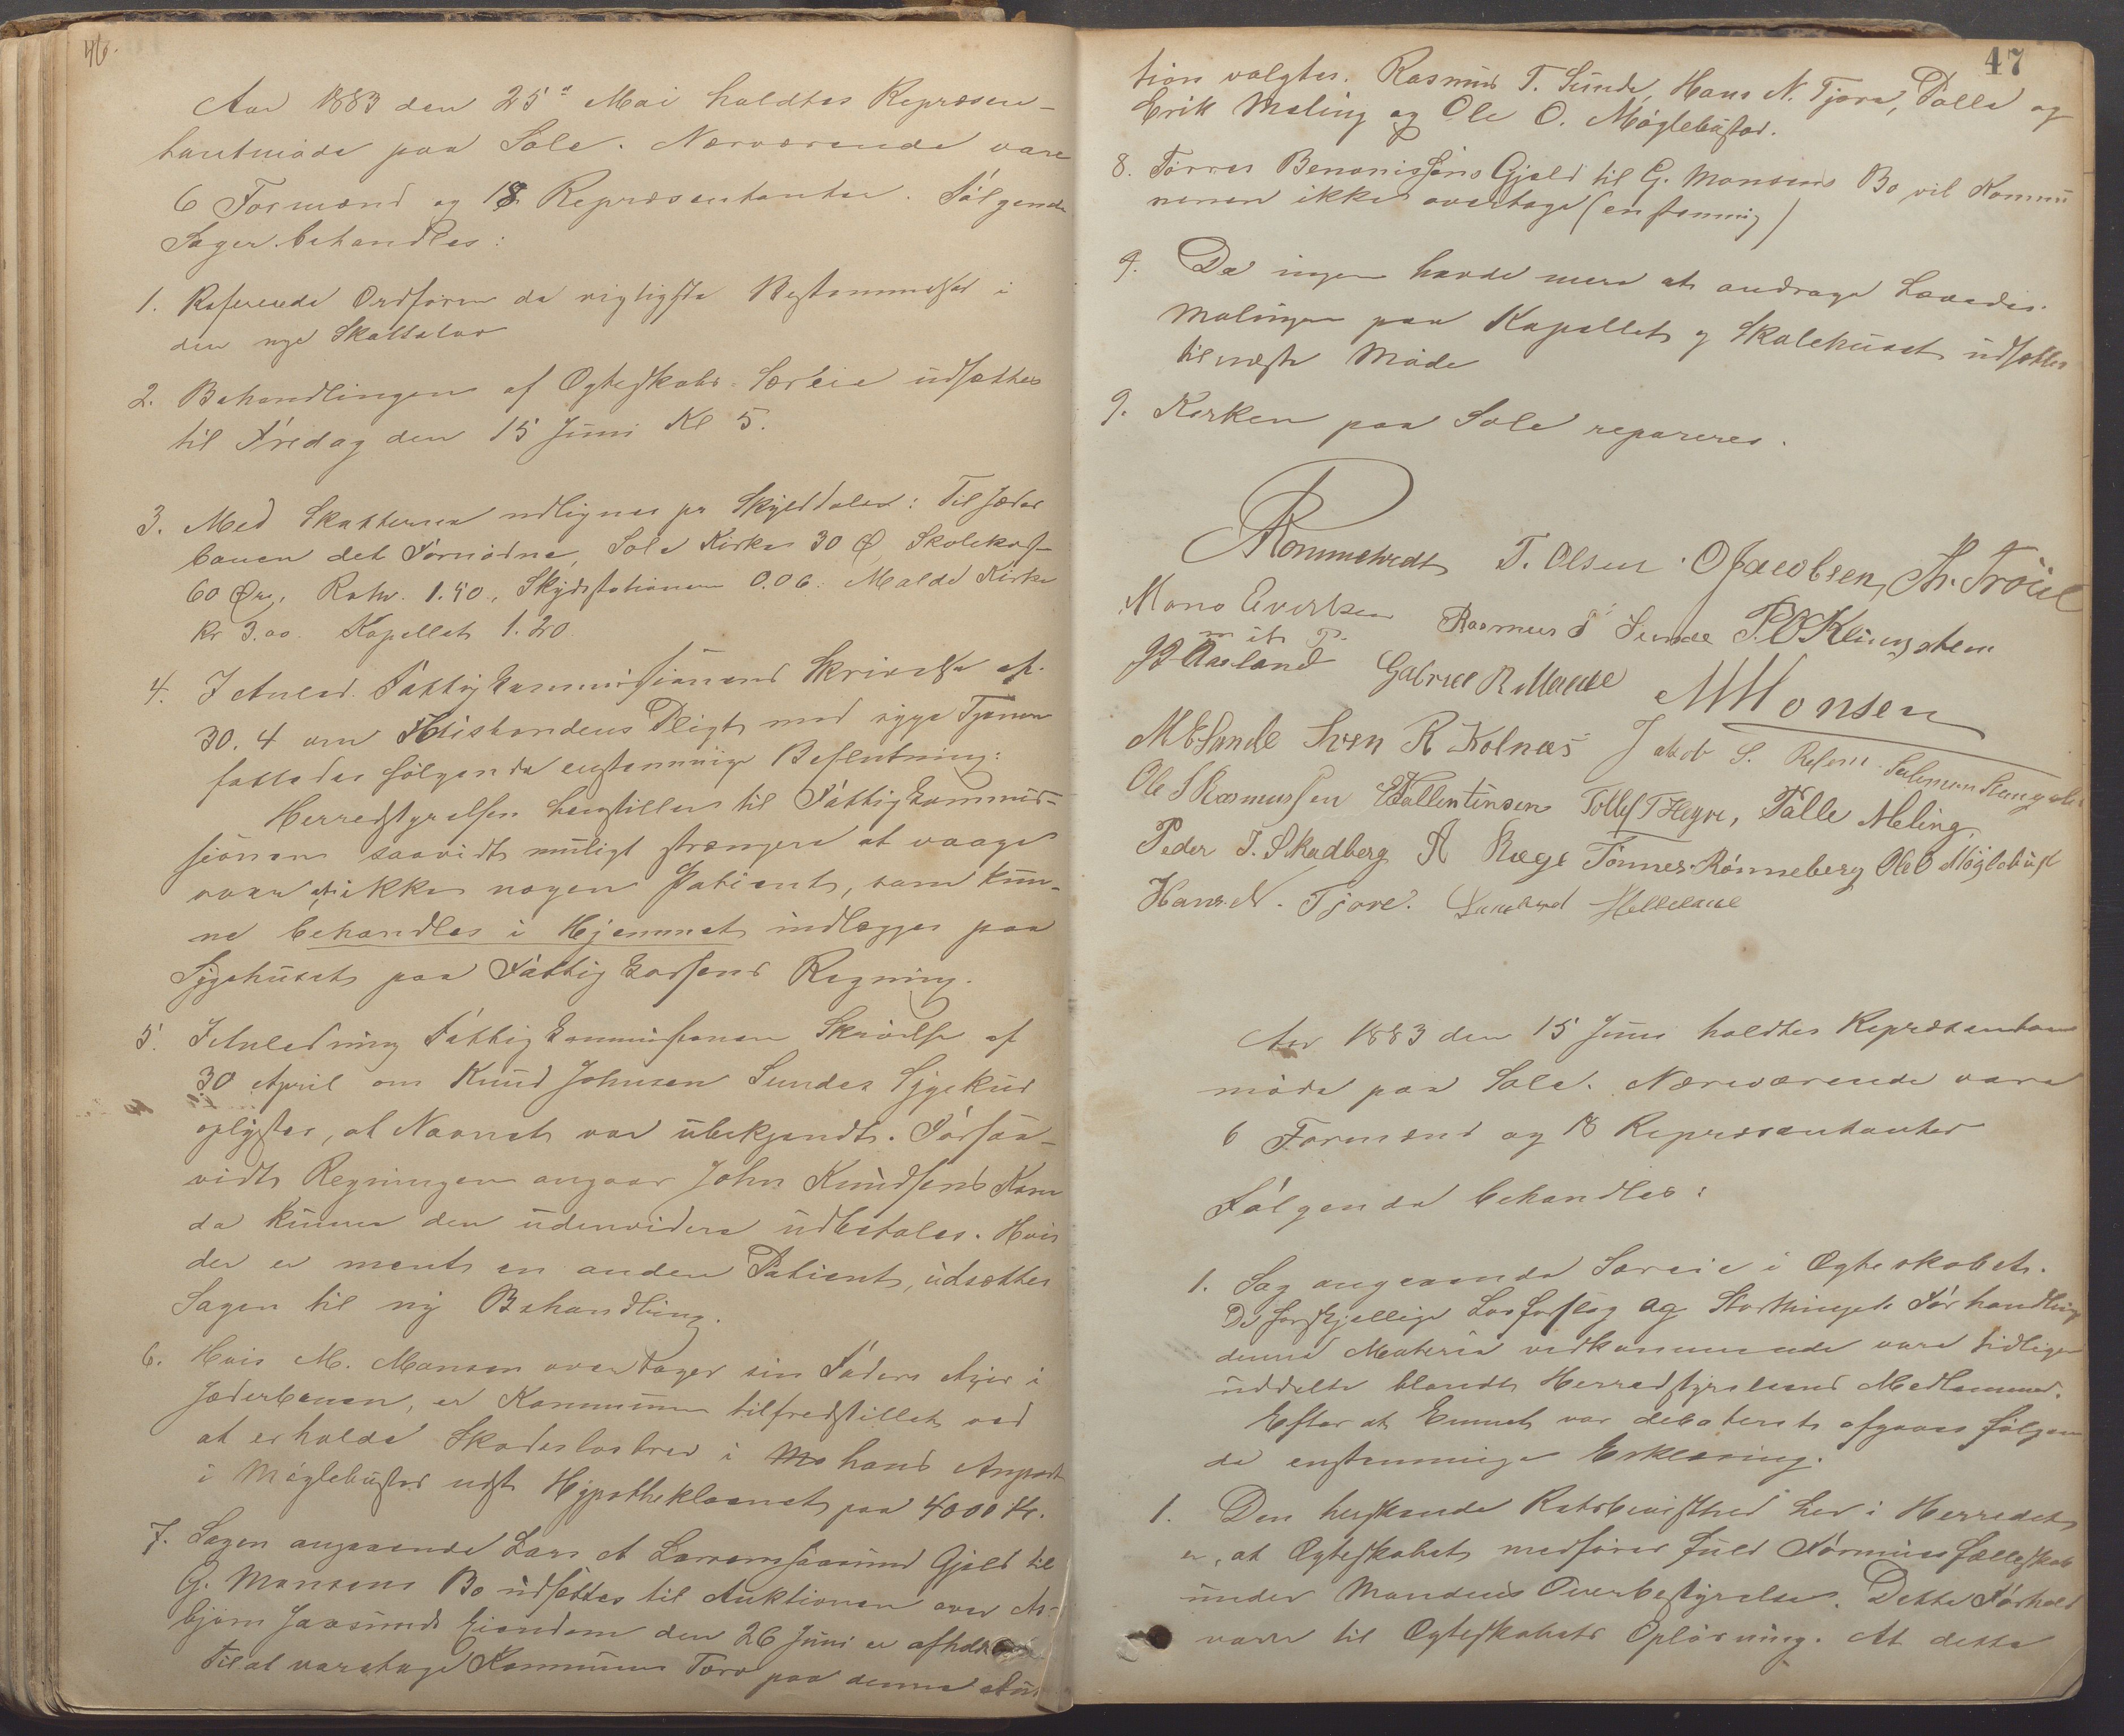 46.
Aar 1883 den 25de Mai holdtes Repræsen-
tantmøde paa Sole. Nærværende vare
6 Formænd og 18 Repræsentanter. Følgende
Sager behandles:
1. Refererede Ordføren de vigtigste Bestemmelser i
den nye Skattelov
2. Behandlingen af Ægteskabs Særeie udsættes
til Fredag den 15 Juni Kl 5.
3. Med Skatterne udlignes pr Skylddaler: Til Jæder
banen det Fornødne, Sole Kirke 30 Ø, Skolekass
60 Øre, Rets. 1.40, Skydsstationen 0.06. Malde Kirke
Kr 3.00. Kapellet 1.20.
4. I Anled. Fattigkommissionens Skrivelse af
30. 4 om Husbondens Pligt mod syge Tjenere
fattedes følgende enstemmige Beslutning:
Herredstyrelsen henstiller til Fattigkommis-
sionen saavidt muligt strengere at vaage
over at ikke nogen Patient, som kun-
ne behandles i Hjemmet indlægges paa
Sygehuset paa Fattigkassens Regning.
5. I Anledning Fattigkommissionen Skrivelse af
30 April om Knud Johnsen Sundes Sygekur
oplystes, at Navnet var ubekjendt. Forsaa-
vidt Regningen angaar John Knudsens Kone
da kunne den udenvidere udbetales. Hvis
der er ment en anden Patient, udsættes
Sagen til ny Behandling.
6. Hvis M. Monsen overtager sin Faders Axier i
Jæderbanen, er Kommunen tilfredstillet ved
at erholde Skadesløsbrev i Mo hans Anpart
i Møglebustad næst Hypotheklaanet paa 4000 Kr.
7. Sagen angaaende Lars A Joasunds Gjeld til
G. Monsens Bo udsættes til Auktionen over As-
bjørn Jaasunds Eiendom den 26 Juni er afholdt
Til at varetage Kommunens Tarv paa denne Auk
47
tion valgtes. Rasmus T. Sunde, Hans N. Tjora, Tolle og
Erik Meling og Ole O. Møglebustad.
8. Torres Benonisens Gjeld til G. Monsens Bo vil Kommu
nenen ikke overtage (enstemmig)
9. Da ingen havde mere at andrage hævedes.
Malingen paa Kapellet og Skolehuset udsættes
til næste Møde
9. Kirken paa Sole repareres.
Rommetvedt T. Olsen O Jacobsen, Th. Fröiel
Mons Evertsen Rasmus T Sunde P. O Kleivsteen
m. it. P.
Aasland Gabriel R Malde M Monsen
M E Sunde Sven R Kolnæs Jakob S. Ræsen Salomon Stangeland
Ole S Rasmussen E Tallentinsen Tollef T Hegre, Tålle Meling,
Peder J. Skadberg A Ræge Tönnes Rönneberg Ole O Møglebust
Hans. N. Tjore. Helleland
Aar 1883 den 15 Juni holdtes Repræsentant
møde paa Sole. Nærværende vare
6 Formænd og 18 Repræsentanter
Følgende behandles:
1. Sag angaaende Særeie i Ægteskabet.
De forskjellige Lovforslag og Storthingets Forhandling
denne Materie vedkommende vare tidligere
uddelte blandt Herredstyrelsens Medlemmer.
Efter at Emnet var debatteret afgaves følgen
de enstemmige Erklæring.
1. Den herskende Retsbevisthed her i Herredet
er, at Ægteskabet medfører fuld Formuesfællesskab
under Mandens Overbestyrelse. Dette Forhold
varer til Ægteskabets Opløsning. At dette